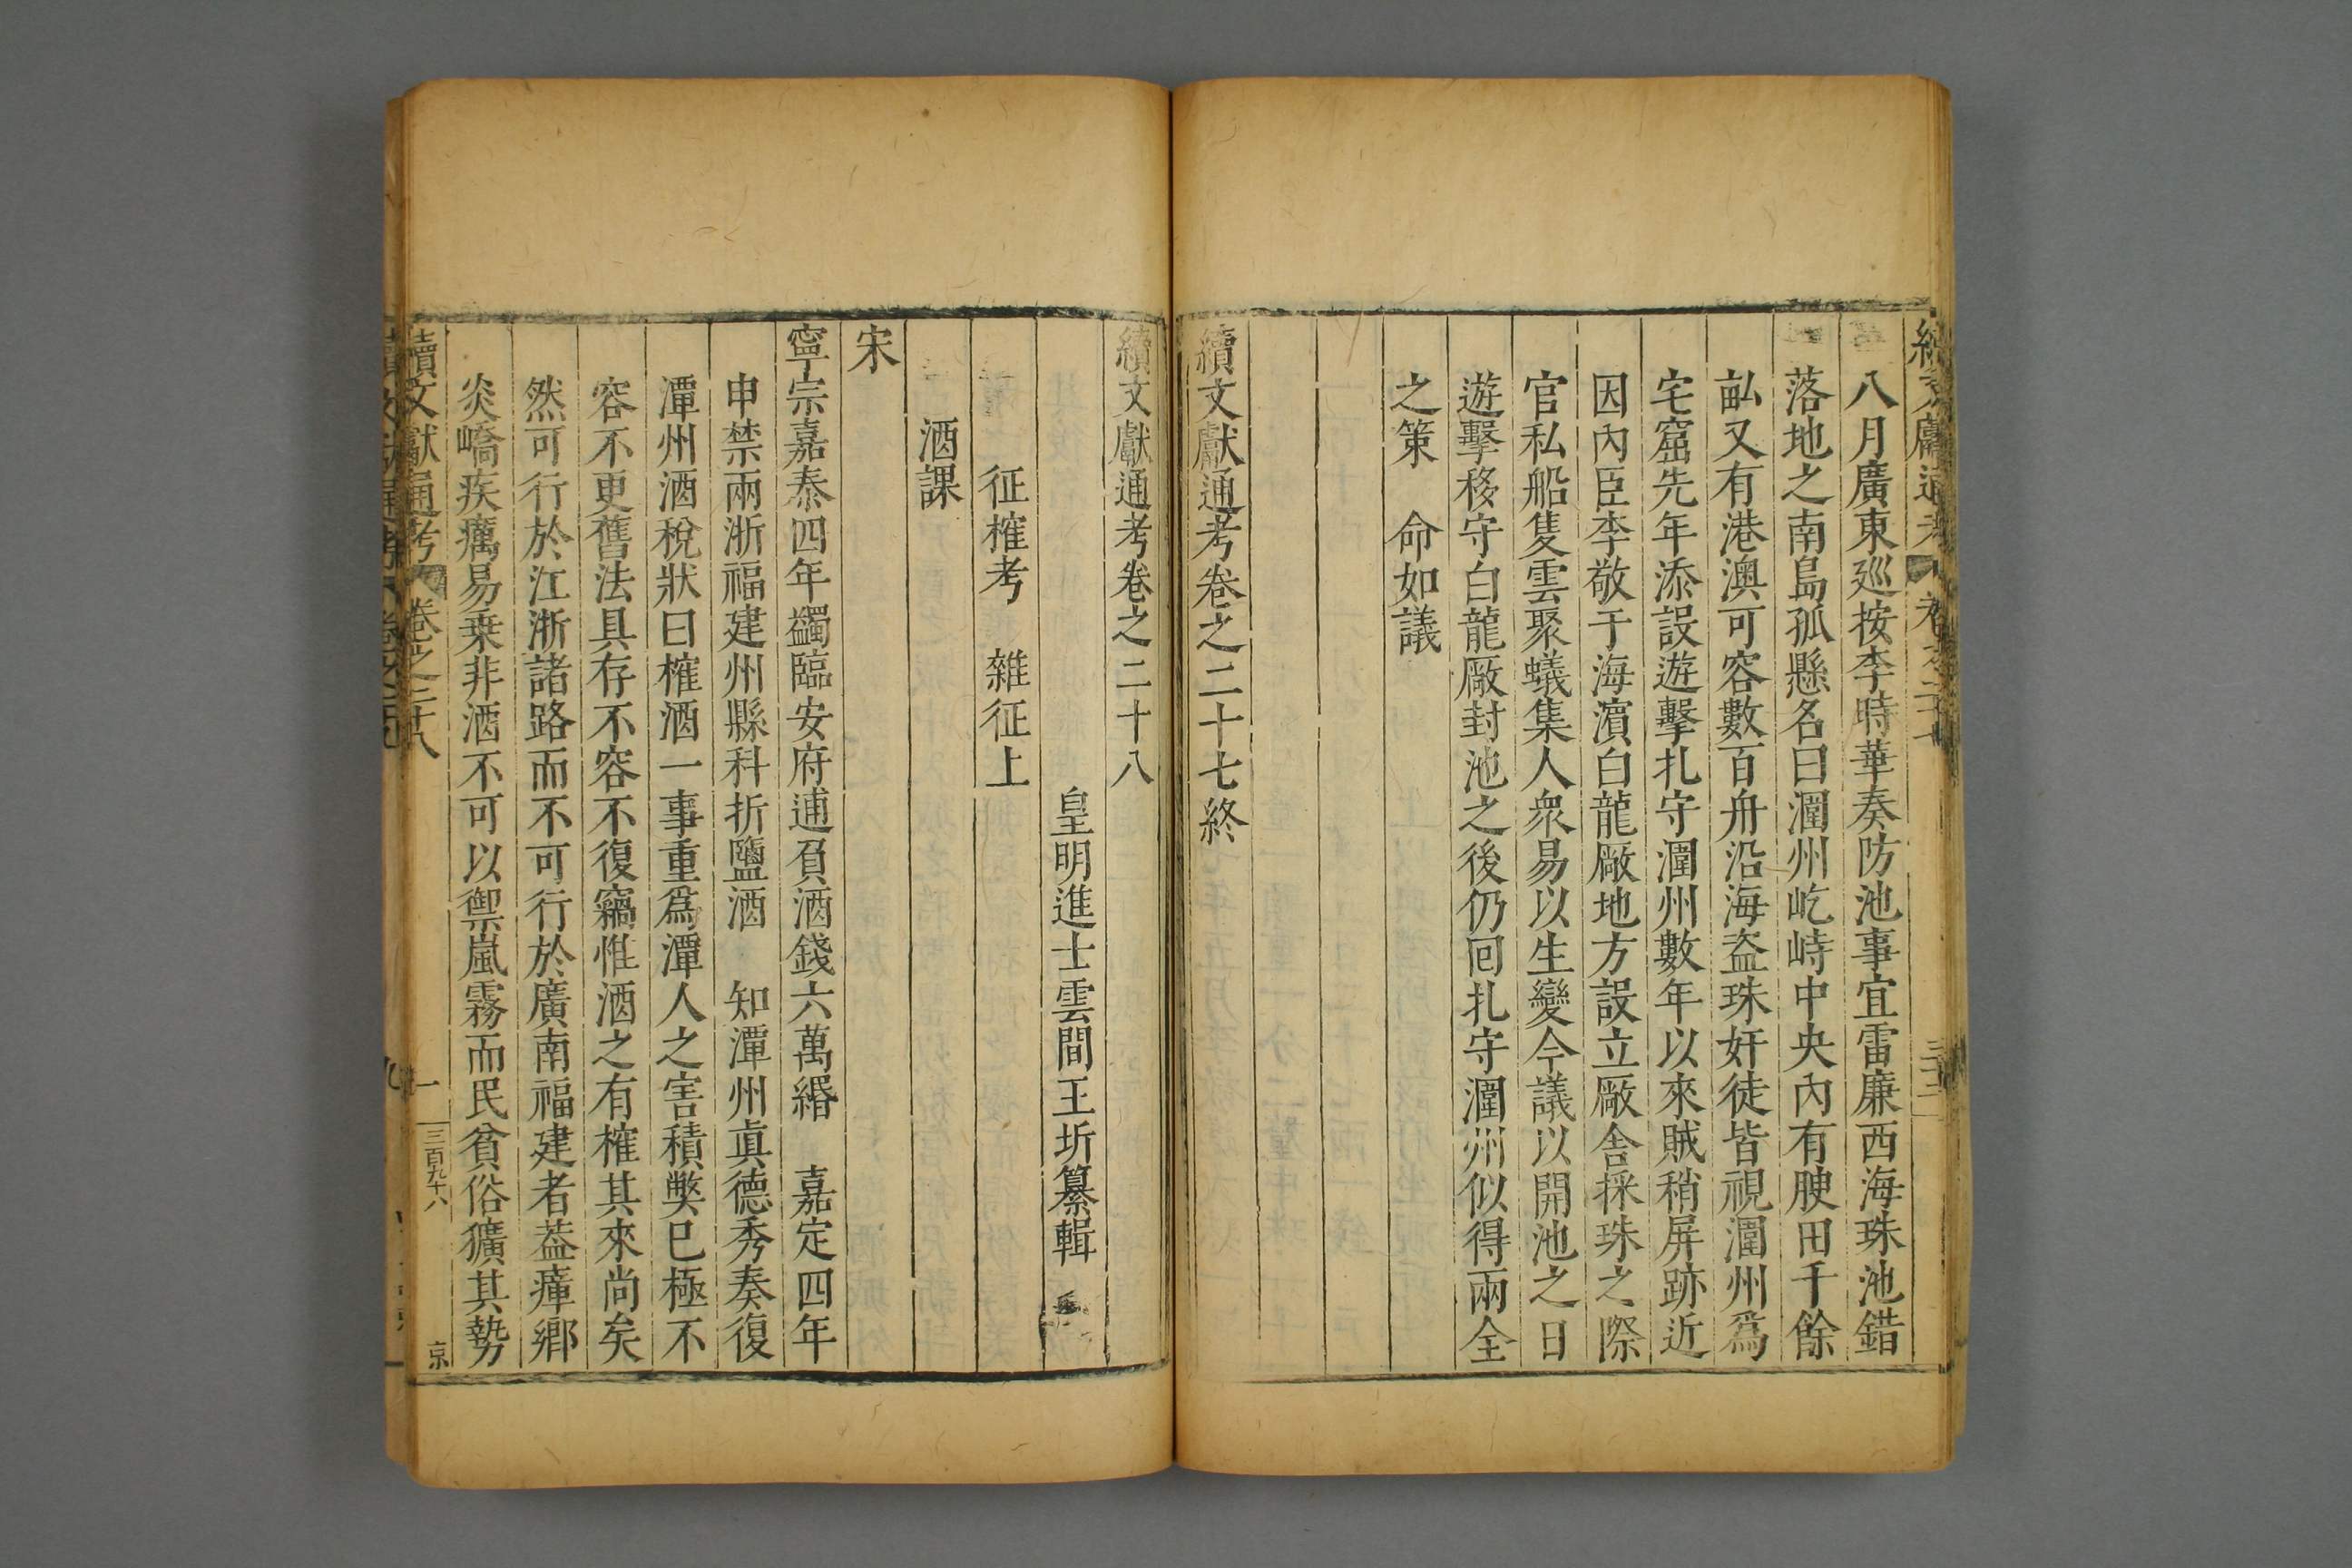 續文獻通考 卷之二十七 三十二
八月廣東廵按李時華奏防池事宜雷廉西海珠池錯
落地之南島孤懸名曰潿州屹峙中央內有腴田千餘
畝又有港澳可容數百舟沿海盗珠奸徒皆視潿州爲
宅窟先年添設遊擊扎守潿州數年以來賊稍屏跡近
因內臣李敬于海濵白龍廠地方設立廠舍採珠之際
官私船隻雲聚蟻集人衆易以生變今議以開池之日
遊擊移守白龍廠封池之後仍回扎守潿州似得兩全
之策　命如議
續文獻通考卷之二十七終
續文獻通考卷之二十八
皇明進士雲間王圻纂輯
征榷考　雜征上
酒課
宋
寧宗嘉泰四年蠲臨安府逋負酒錢六萬緡　嘉定四年
申禁兩浙福建州縣科折鹽酒　知潭州眞德秀奏復
潭州酒稅狀曰榷酒一事重爲潭人之害積獘已極不
容不更舊法具存不容不復竊惟酒之有榷其來尚矣
然可行於江浙諸路而不可行於廣南福建者葢瘴鄉
炎嶠疾癘易乗非酒不可以禦嵐霧而民貧俗獷其勢
續文獻通考 卷之二十八 一 三百九十八 京